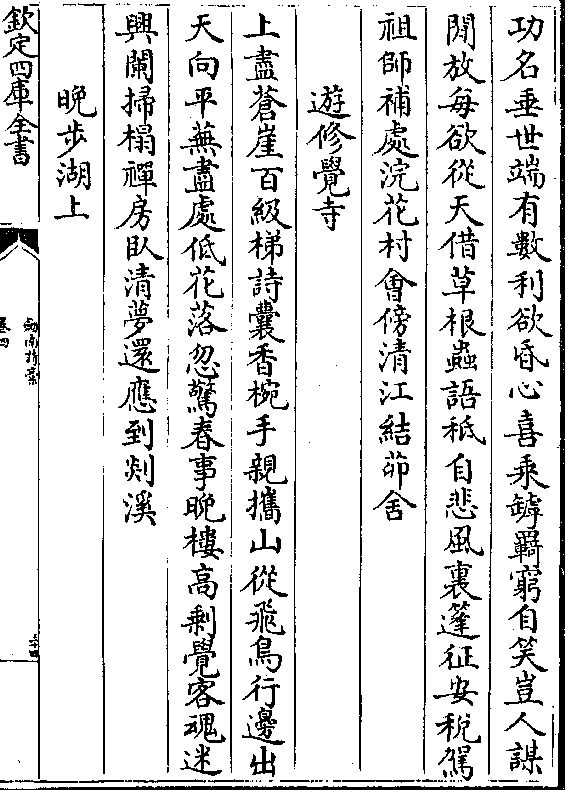 功名垂世端有數利欲昏心喜乘罅羈窮自笑豈人謀
閒放每欲從天借草根蟲語秪自悲風裏蓬征安稅駕
祖師補處浣花村會傍清江結茆舍
遊修覺寺
上盡蒼崖百級梯詩囊香椀手親攜山從飛鳥行邊出
天向平蕪盡處低花落忽驚春事晚樓高剩覺客魂迷
興闌掃榻禪房臥清夢還應到剡溪
晚步湖上
欽定四庫全書
卷四